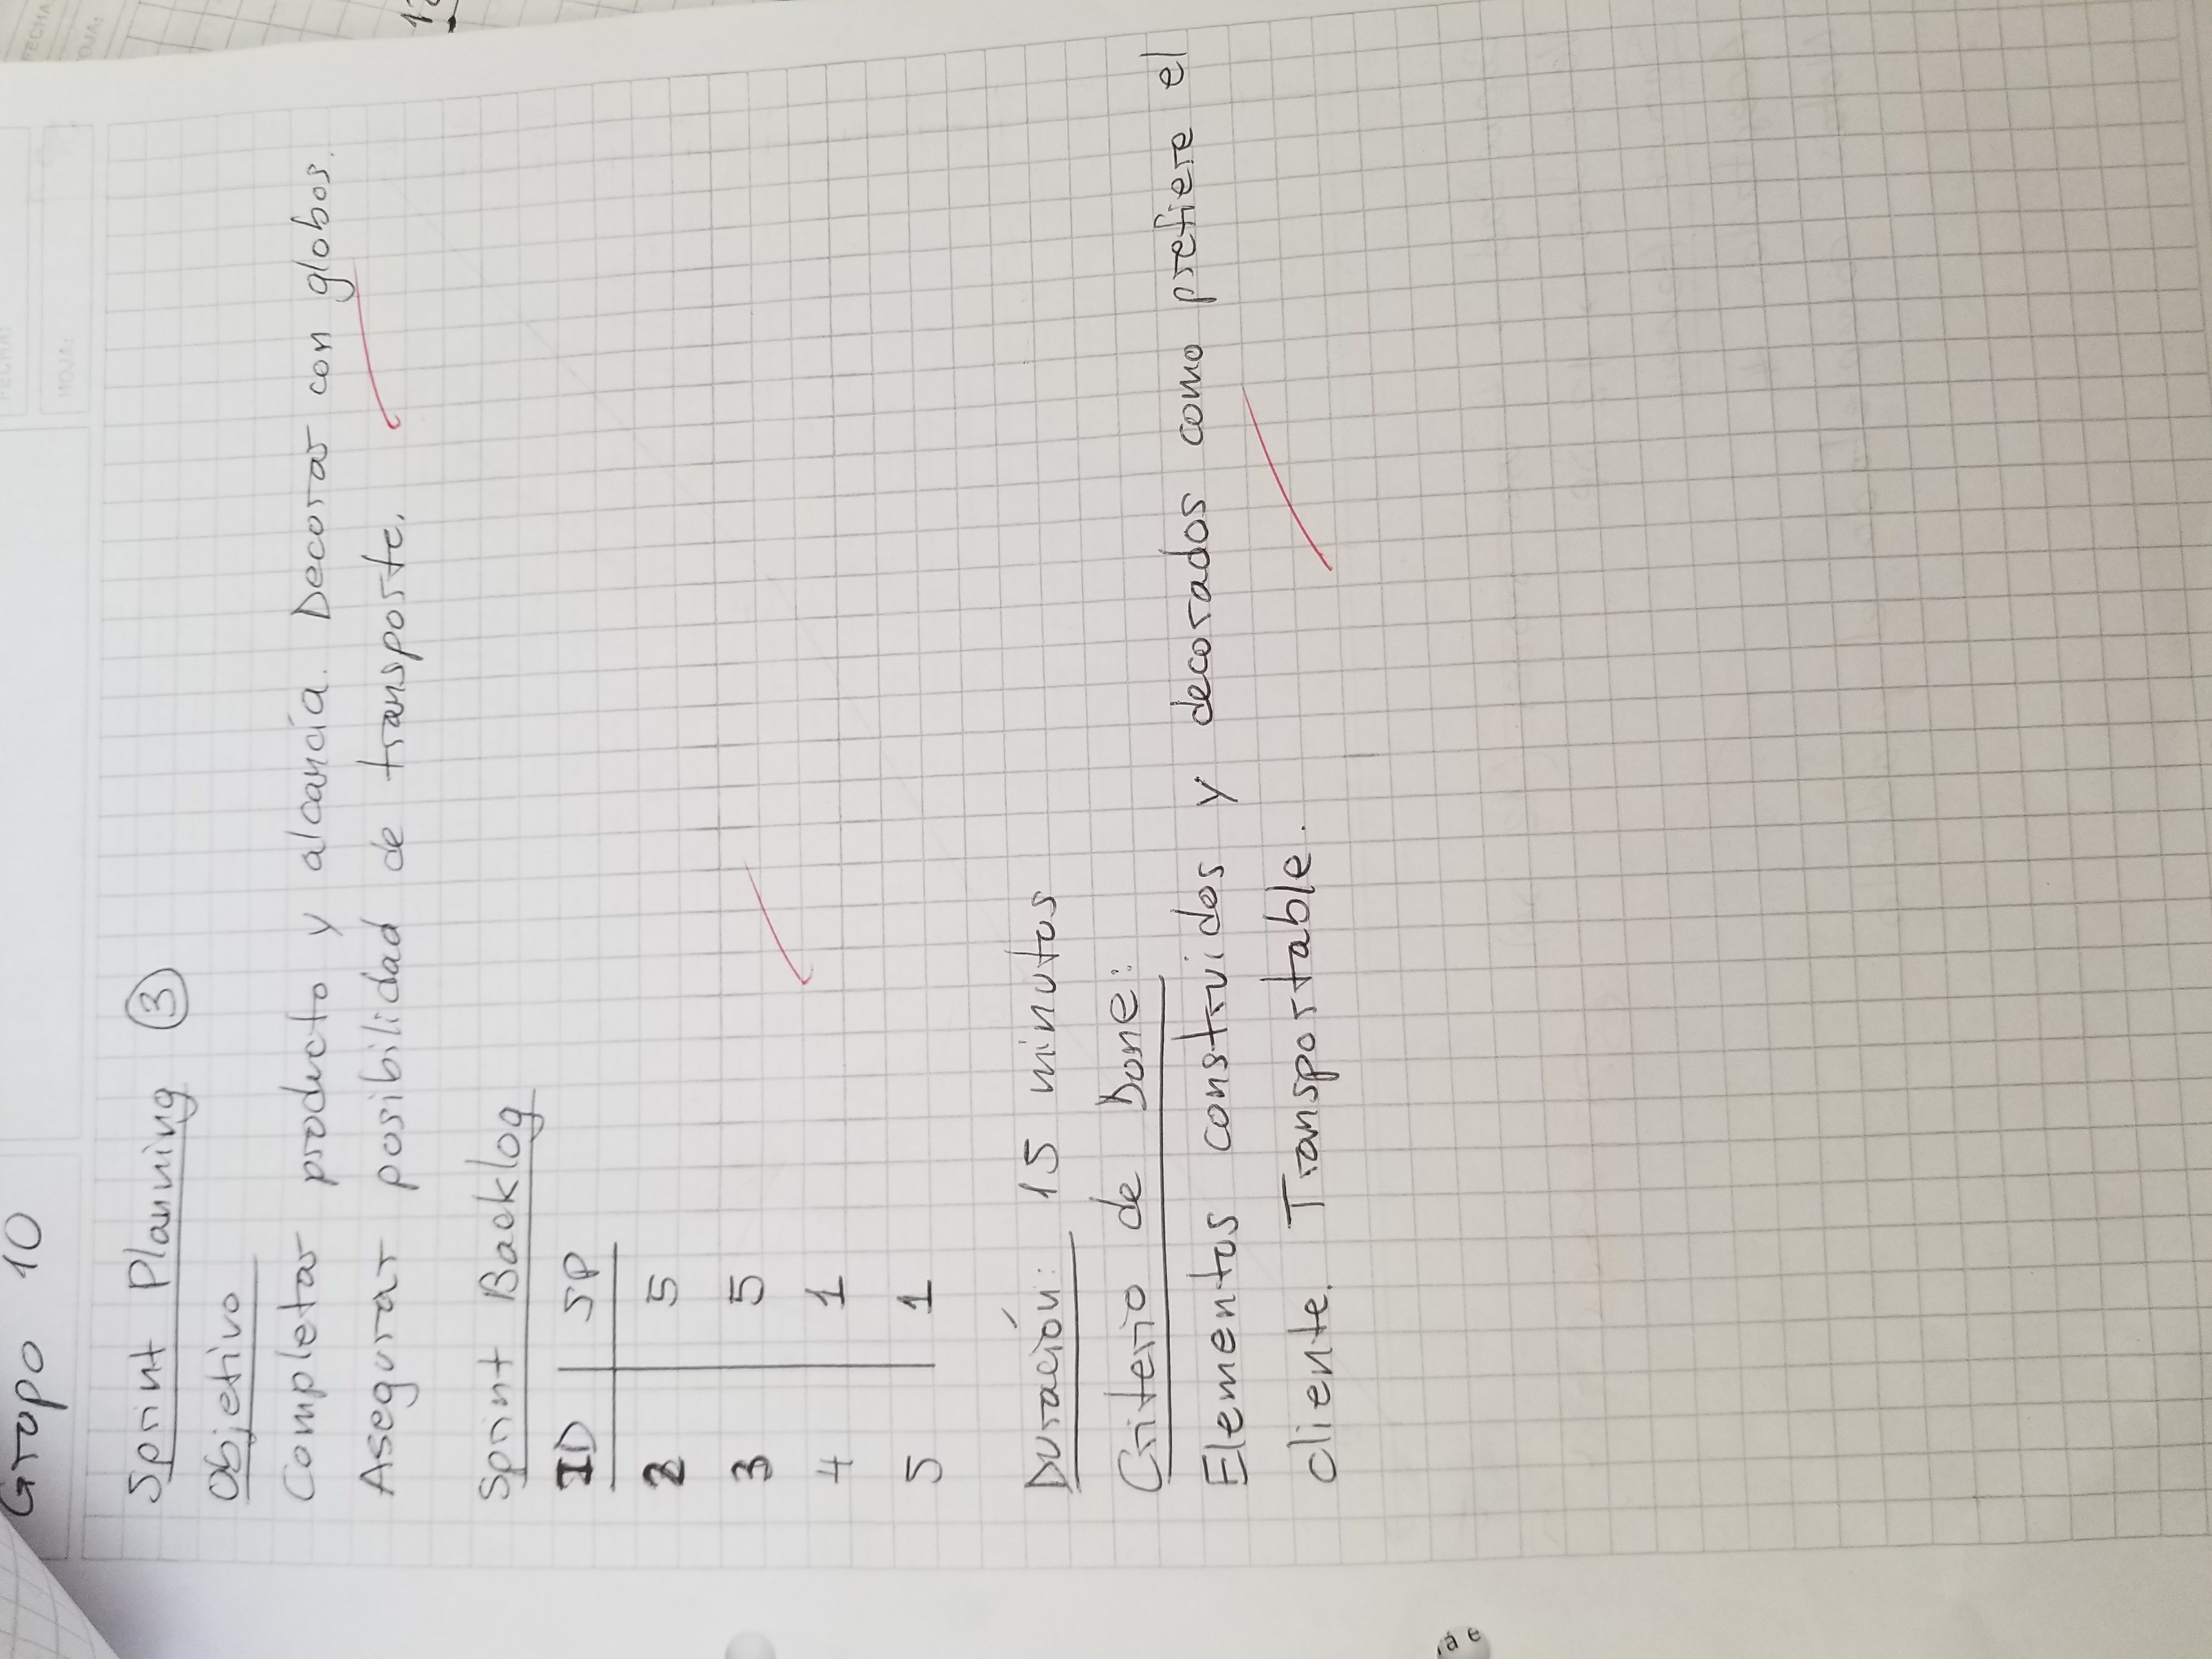 Grupo 10
FECHA:
HOJA:
FECHA
Sprint Planning 3
Objetivo
Completar producto y alcancía. Decorar con globos.
Asegurar posibilidad de transporte.
Sprint Backlog
ID SP
2 5
3 5
4 1
5 1
Duración: 15 minutos
Criterio de Done:
Elementos construidos y decorados como prefiere el
cliente. Transportable.